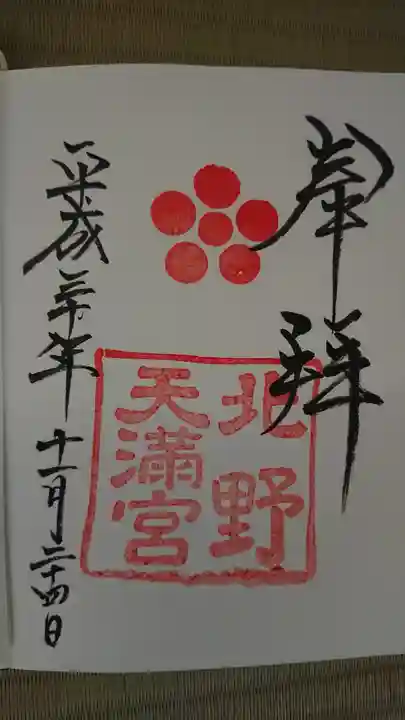 奉拝
北野
天満宮
平成三十年
十一月二十四日